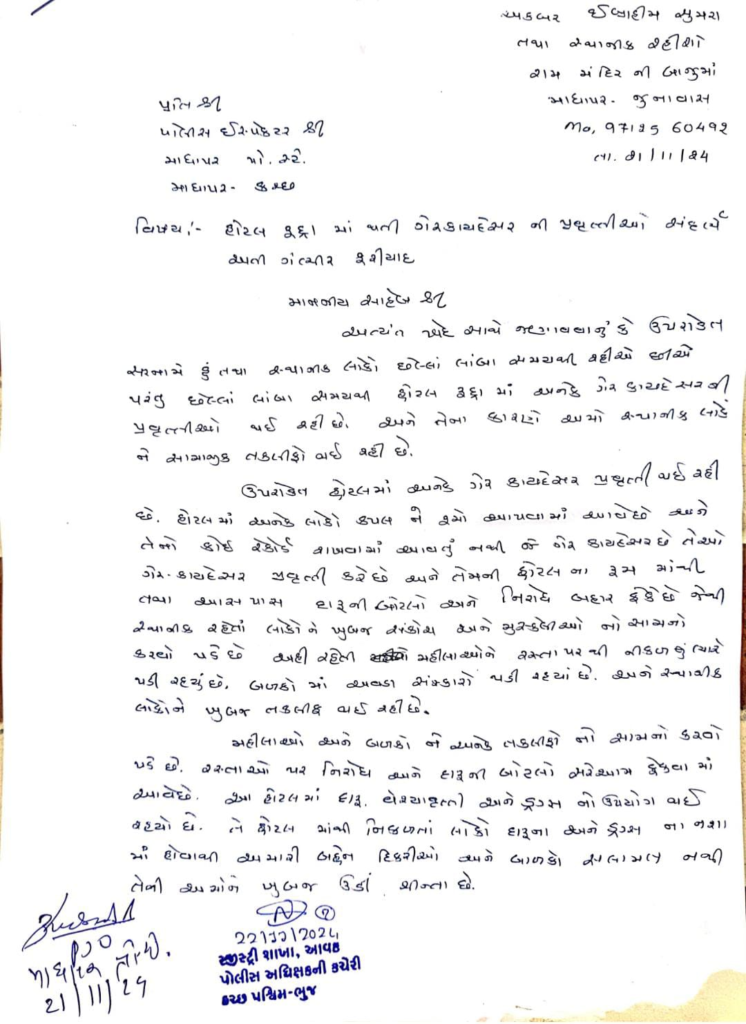 અકબર ઈબ્રાહીમ સુમરા
તથા સ્થાનીક રહીશો
રામ મંદિર ની બાજુમાં
માધાપર- જુનાવાસ
મo, 97125 60492
તા. 21/11/24
પ્રતિ શ્રી
પોલીસ ઈન્સ્પેક્ટર શ્રી
માધાપર પો. સ્ટે.
માધાપર- કચ્છ
વિષય:- હોટલ રૂદ્રા માં થતી ગેરકાયદેસર ની પ્રવૃત્તીઓ સંદર્ભે
અતી ગંભીર ફરીયાદ
માનનીય સાહેબ શ્રી
અત્યંત ખેદ સાથે જણાવવાનું કે ઉપરોક્ત
સરનામે હું તથા સ્થાનીક લોકો છેલ્લાં લાંબા સમયથી રહીએ છીએ
પરંતુ છેલ્લાં લાંબા સમયથી હોટલ રૂદ્રા માં અનેક ગેર કાયદેસરની
પ્રવૃત્તીઓ થઈ રહી છે. અને તેના કારણે અમો સ્થાનીક લોકો
ને સામાજીક તકલીફો થઈ રહી છે.
ઉપરોક્ત હોટલમાં અનેક ગેર કાયદેસર પ્રવૃત્તી થઈ રહી
છે. હોટલમાં અનેક લોકો કપલ ને રૂમો આપવામાં આવેછે અને
તેનો કોઈ રેકોર્ડ રાખવામાં આવતું નથી જે ગેર કાયદેસર છે તેઓ
ગેર-કાયદેસર પ્રવૃત્તી કરેછે અને તેમની હોટલ ના રૂમ માંથી
તથા આસપાસ દારૂની બોટલો અને નિરોધ બહાર ફેંકેછે જેથી
સ્થાનીક રહેતાં લોકોને ખુબજ સંકોચ અને મુશ્કેલીઓ નો સામનો
કરવો પડેછે અહી રહેતી મહીલાઓને રસ્તા પર થી નીકળવું ભારે
પડી રહયું છે. બાળકો માં અવળા સંસ્કારો પડી રહયાં છે. અને સ્થાનીક
લોકોને ખુબજ તકલીફ થઈ રહી છે.
મહીલાઓ અને બાળકો ને અનેક તકલીફો નો સામનો કરવો
પડે છે. રસ્તાઓ પર નિરોધ અને દારૂની બોટલો સરેઆમ ફેંકવા માં
આવેછે. આ હોટલમાં દારૂ, વેશ્યાવૃત્તી અને ડ્રગ્સ નો ઉપયોગ થઈ
રહયો છે. તે હોટલ માંથી નિકળતાં લોકો દારૂના અને ડ્રગ્સ ના નશા
માં હોવાથી અમારી બહેન દિકરીઓ અને બાળકો સલામત નથી
તેની અમોને ખુબજ ઉંડી ચીન્તા છે.
PSO
21/11/24
22/11/2024
રજીસ્ટ્રી શાખા, આવક
પોલીસ અધિક્ષકની કચેરી
કચ્છ પશ્ચિમ-ભુજ